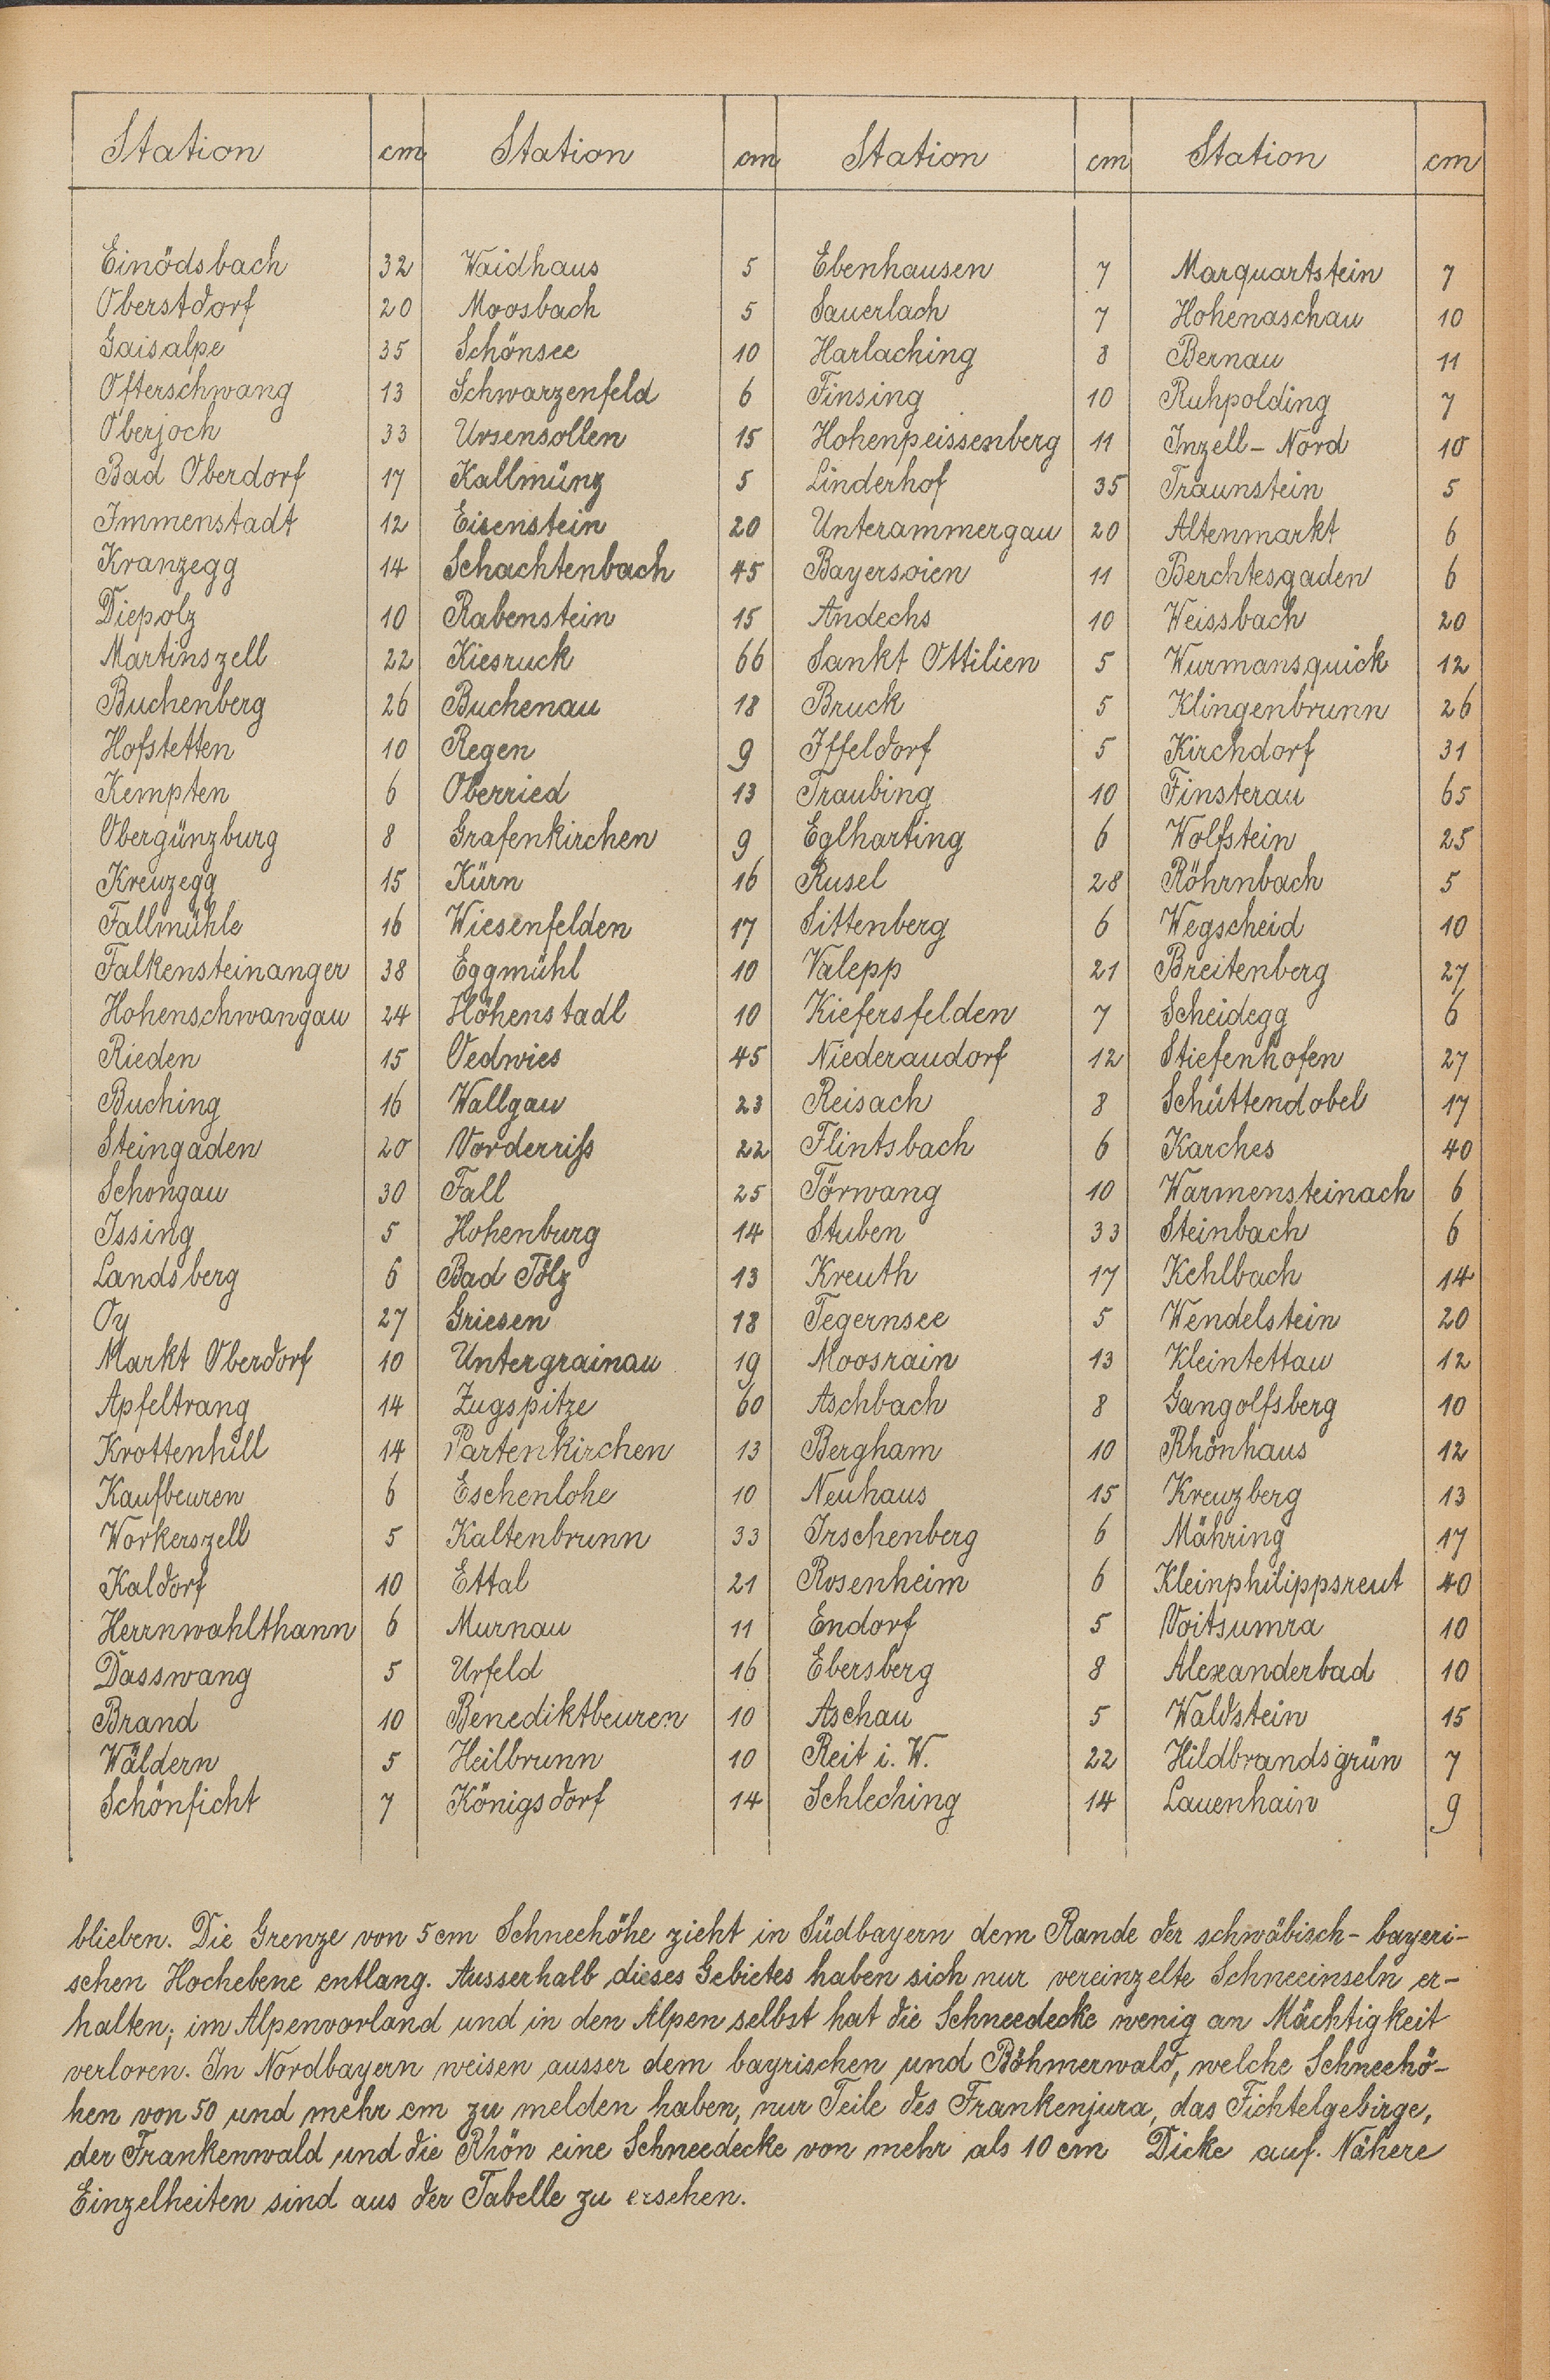 Station cm Station cm Station cm Station cm
Einödsbach 32 Waidhaus 5 Ebenhausen 7 Marquartstein 7
Oberstdorf 20 Moosbach 5 Sauerlach 7 Hohenaschau 10
Gaisalpe 35 Schönsee 10 Harlaching 8 Bernau 11
Ofterschwang 13 Schwarzenfeld 6 Finsing 10 Ruhpolding 7
Oberjoch 33 Ursensollen 15 Hohenpeissenberg 11 Inzell-Nord 10
Bad Oberdorf 17 Kallmünz 5 Linderhof 35 Traunstein 5
Immenstadt 12 Eisenstein 20 Unterammergau 20 Altenmarkt 6
Kranzegg 14 Schachtenbach 45 Bayersoien 11 Berchtesgaden 6
Diepolz 10 Rabenstein 15 Andechs 10 Weissbach 20
Martinszell 22 Kiesruck 66 Sankt Ottilien 5 Wurmansquick 12
Buchenberg 26 Buchenau 18 Bruck 5 Klingenbrunn 26
Hofstetten 10 Regen 9 Iffeldorf 5 Kirchdorf 31
Kempten 6 Oberried 13 Traubing 10 Finsterau 65
Obergünzburg 8 Grafenkirchen 9 Eglharting 6 Wolfstein 25
Kreuzegg 15 Kürn 16 Rusel 28 Röhrnbach 5
Fallmühle 16 Wiesenfelden 17 Sittenberg 6 Wegscheid 10
Falkensteinanger 38 Eggmühl 10 Valepp 21 Breitenberg 27
Hohenschwangau 24 Höhenstadl 10 Kiefersfelden 7 Scheidegg 6
Rieden 15 Oedwies 45 Niederaudorf 12 Stiefenhofen 27
Buching 16 Wallgau 23 Reisach 8 Schüttendobel 17
Steingaden 20 Vorderriß 22 Flintsbach 6 Karches 40
Schongau 30 Fall 25 Törwang 10 Warmensteinach 6
Issing 5 Hohenburg 14 Stuben 33 Steinbach 6
Landsberg 6 Bad Tölz 13 Kreuth 17 Kehlbach 14
Oy 27 Griesen 18 Tegernsee 5 Wendelstein 20
Markt Oberdorf 10 Untergrainau 19 Moosrain 13 Kleintettau 12
Apfeltrang 14 Zugspitze 60 Aschbach 8 Gangolfsberg 10
Krottenhill 14 Partenkirchen 13 Bergham 10 Rhönhaus 12
Kaufbeuren 6 Eschenlohe 10 Neuhaus 15 Kreuzberg 13
Workerszell 5 Kaltenbrunn 33 Irschenberg 6 Mähring 17
Kaldorf 10 Ettal 21 Rosenheim 6 Kleinphilippsreut 40
Herrnwahlthann 6 Murnau 11 Endorf 5 Voitsumra 10
Dasswang 5 Urfeld 16 Ebersberg 8 Alexanderbad 10
Brand 10 Benediktbeuren 10 Aschau 5 Waldstein 15
Wäldern 5 Heilbrunn 10 Reit i. W. 22 Hildbrandsgrün 7
Schönficht 7 Königsdorf 14 Schleching 14 Lauenhain 9
blieben. Die Grenze von 5 cm Schneehöhe zieht in Südbayern dem Rande der schwäbisch-bayeri-
schen Hochebene entlang. Ausserhalb dieses Gebietes haben sich nur vereinzelte Schneeinseln er-
halten; im Alpenvorland und in den Alpen selbst hat die Schneedecke wenig an Mächtigkeit
verloren. In Nordbayern weisen ausser dem bayrischen und Böhmerwald, welche Schneehö-
hen von 50 und mehr cm zu melden haben, nur Teile des Frankenjura, das Fichtelgebirge,
der Frankenwald und die Rhön eine Schneedecke von mehr als 10 cm Dicke auf. Nähere
Einzelheiten sind aus der Tabelle zu ersehen.